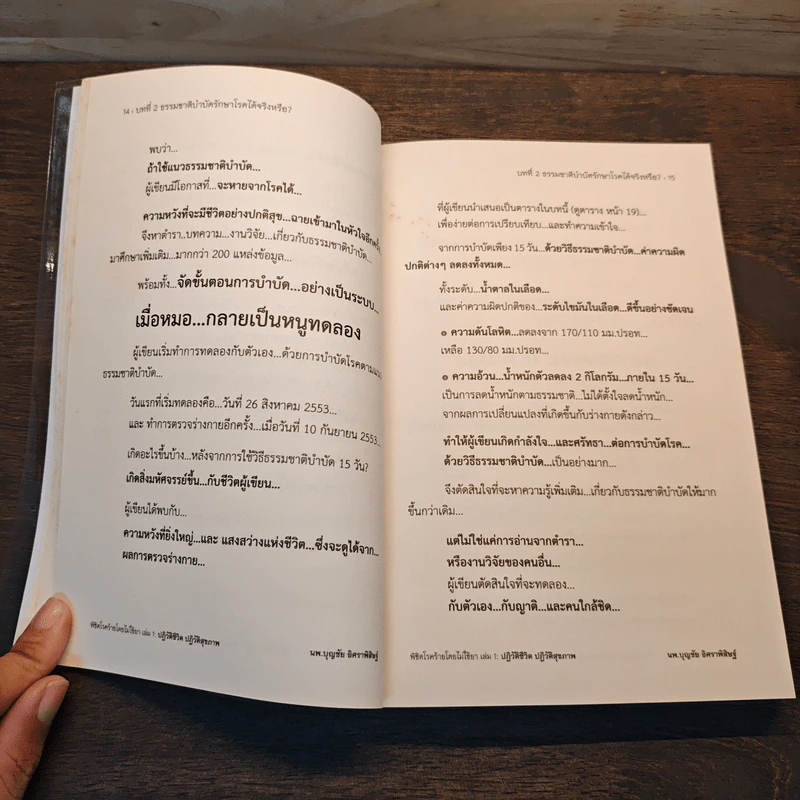 14 • บทที่ 2 ธรรมชาติบำบัดรักษาโรคได้จริงหรือ?
พบว่า...
ถ้าใช้แนวธรรมชาติบำบัด...
ผู้เขียนมีโอกาสที่...จะหายจากโรคได้...
ความหวังที่จะมีชีวิตอย่างปกติสุข...ฉายเข้ามาในหัวใจอีกครั้ง
จึงหาตำรา..บทความ...งานวิจัย...เกี่ยวกับธรรมชาติบำบัด...
มาศึกษาเพิ่มเติม...มากกว่า 200 แหล่งข้อมูล...
พร้อมทั้ง...จัดขั้นตอนการบำบัด...อย่างเป็นระบบ...
เมื่อหมอ...กลายเป็นหนูทดลอง
ผู้เขียนเริ่มทำการทดลองกับตัวเอง...ด้วยการบำบัดโรคตามแนว
ธรรมชาติบำบัด...
วันแรกที่เริ่มทดลองคือ...วันที่ 26 สิงหาคม 2553...
และ ทำการตรวจร่างกายอีกครั้ง...เมื่อวันที่ 10 กันยายน 2553...
เกิดอะไรขึ้นบ้าง...หลังจากการใช้วิธีธรรมชาติบำบัด 15 วัน?
เกิดสิ่งมหัศจรรย์ขึ้น...กับชีวิตผู้เขียน...
ผู้เขียนได้พบกับ...
ความหวังที่ยิ่งใหญ่...และ แสงสว่างแห่งชีวิต...ซึ่งจะดูได้จาก...
ผลการตรวจร่างกาย...
พิชิตโรคร้ายโดยไม่ใช้ยา เล่ม 1: ปฏิวัติชีวิต ปฏิวัติสุขภาพ
นพ.บุญชัย อิศราพิสิษฐ์
บทที่ 2 ธรรมชาติบำบัดรักษาโรคได้จริงหรือ? • 15
ที่ผู้เขียนนำเสนอเป็นตารางในบทนี้ (ดูตาราง หน้า 19)...
เพื่อง่ายต่อการเปรียบเทียบ...และทำความเข้าใจ...
จากการบำบัดเพียง 15 วัน...ด้วยวิธีธรรมชาติบำบัด...ค่าความผิด
ปกติต่างๆ ลดลงทั้งหมด...
ทั้งระดับ...น้ำตาลในเลือด...
และค่าความผิดปกติของ...ระดับไขมันในเลือด...ดีขึ้นอย่างชัดเจน
๏ ความดันโลหิต...ลดลงจาก 170/110 มม.ปรอท...
เหลือ 130/80 มม.ปรอท...
๏ ความอ้วน...น้ำหนักตัวลดลง 2 กิโลกรัม...ภายใน 15 วัน...
เป็นการลดน้ำหนักตามธรรมชาติ...ไม่ได้ตั้งใจลดน้ำหนัก...
จากผลการเปลี่ยนแปลงที่เกิดขึ้นกับร่างกายดังกล่าว...
ทำให้ผู้เขียนเกิดกำลังใจ...และศรัทธา...ต่อการบำบัดโรค...
ด้วยวิธีธรรมชาติบำบัด...เป็นอย่างมาก...
จึงตัดสินใจที่จะหาความรู้เพิ่มเติม...เกี่ยวกับธรรมชาติบำบัดให้มาก
ขึ้นกว่าเดิม...
แต่ไม่ใช่แค่การอ่านจากตำรา...
หรืองานวิจัยของคนอื่น...
ผู้เขียนตัดสินใจที่จะทดลอง...
กับตัวเอง...กับญาติ...และคนใกล้ชิด...
พิชิตโรคร้ายโดยไม่ใช้ยา เล่ม 1: ปฏิวัติชีวิต ปฏิวัติสุขภาพ
นพ.บุญชัย อิศราพิสิษฐ์